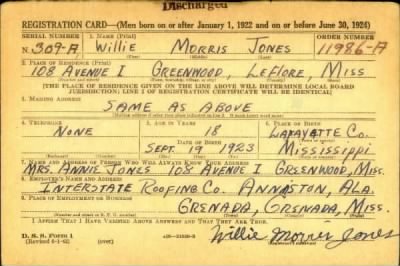 Discharged
REGISTRATION CARD—(Men born on or after January 1, 1922 and on or before June 30, 1924)
SERIAL NUMBER 1. NAME (Print) ORDER NUMBER
N 309-A Willie Morris Jones 11986-A
(First) (Middle) (Last)
2. PLACE OF RESIDENCE (Print)
108 Avenue I Greenwood, LeFlore, Miss
[THE PLACE OF RESIDENCE GIVEN ON THE LINE ABOVE WILL DETERMINE LOCAL BOARD
JURISDICTION; LINE 2 OF REGISTRATION CERTIFICATE WILL BE IDENTICAL]
3. MAILING ADDRESS
Same As Above
4. TELEPHONE 5. AGE IN YEARS 6. PLACE OF BIRTH
None 18 Lafayette Co.
DATE OF BIRTH
Sept. 19 1923 Mississippi
7. NAME AND ADDRESS OF PERSON WHO WILL ALWAYS KNOW YOUR ADDRESS
Mrs. Annie Jones 108 Avenue I Greenwood, Miss.
8. EMPLOYER'S NAME AND ADDRESS
Interstate Roofing Co. Anniston, Ala.
9. PLACE OF EMPLOYMENT OR BUSINESS
Grenada, Grenada, Miss.
I AFFIRM THAT I HAVE VERIFIED ABOVE ANSWERS AND THAT THEY ARE TRUE.
D. S. S. Form 1
(Revised 6-1-42) (over)
Willie Morris Jones